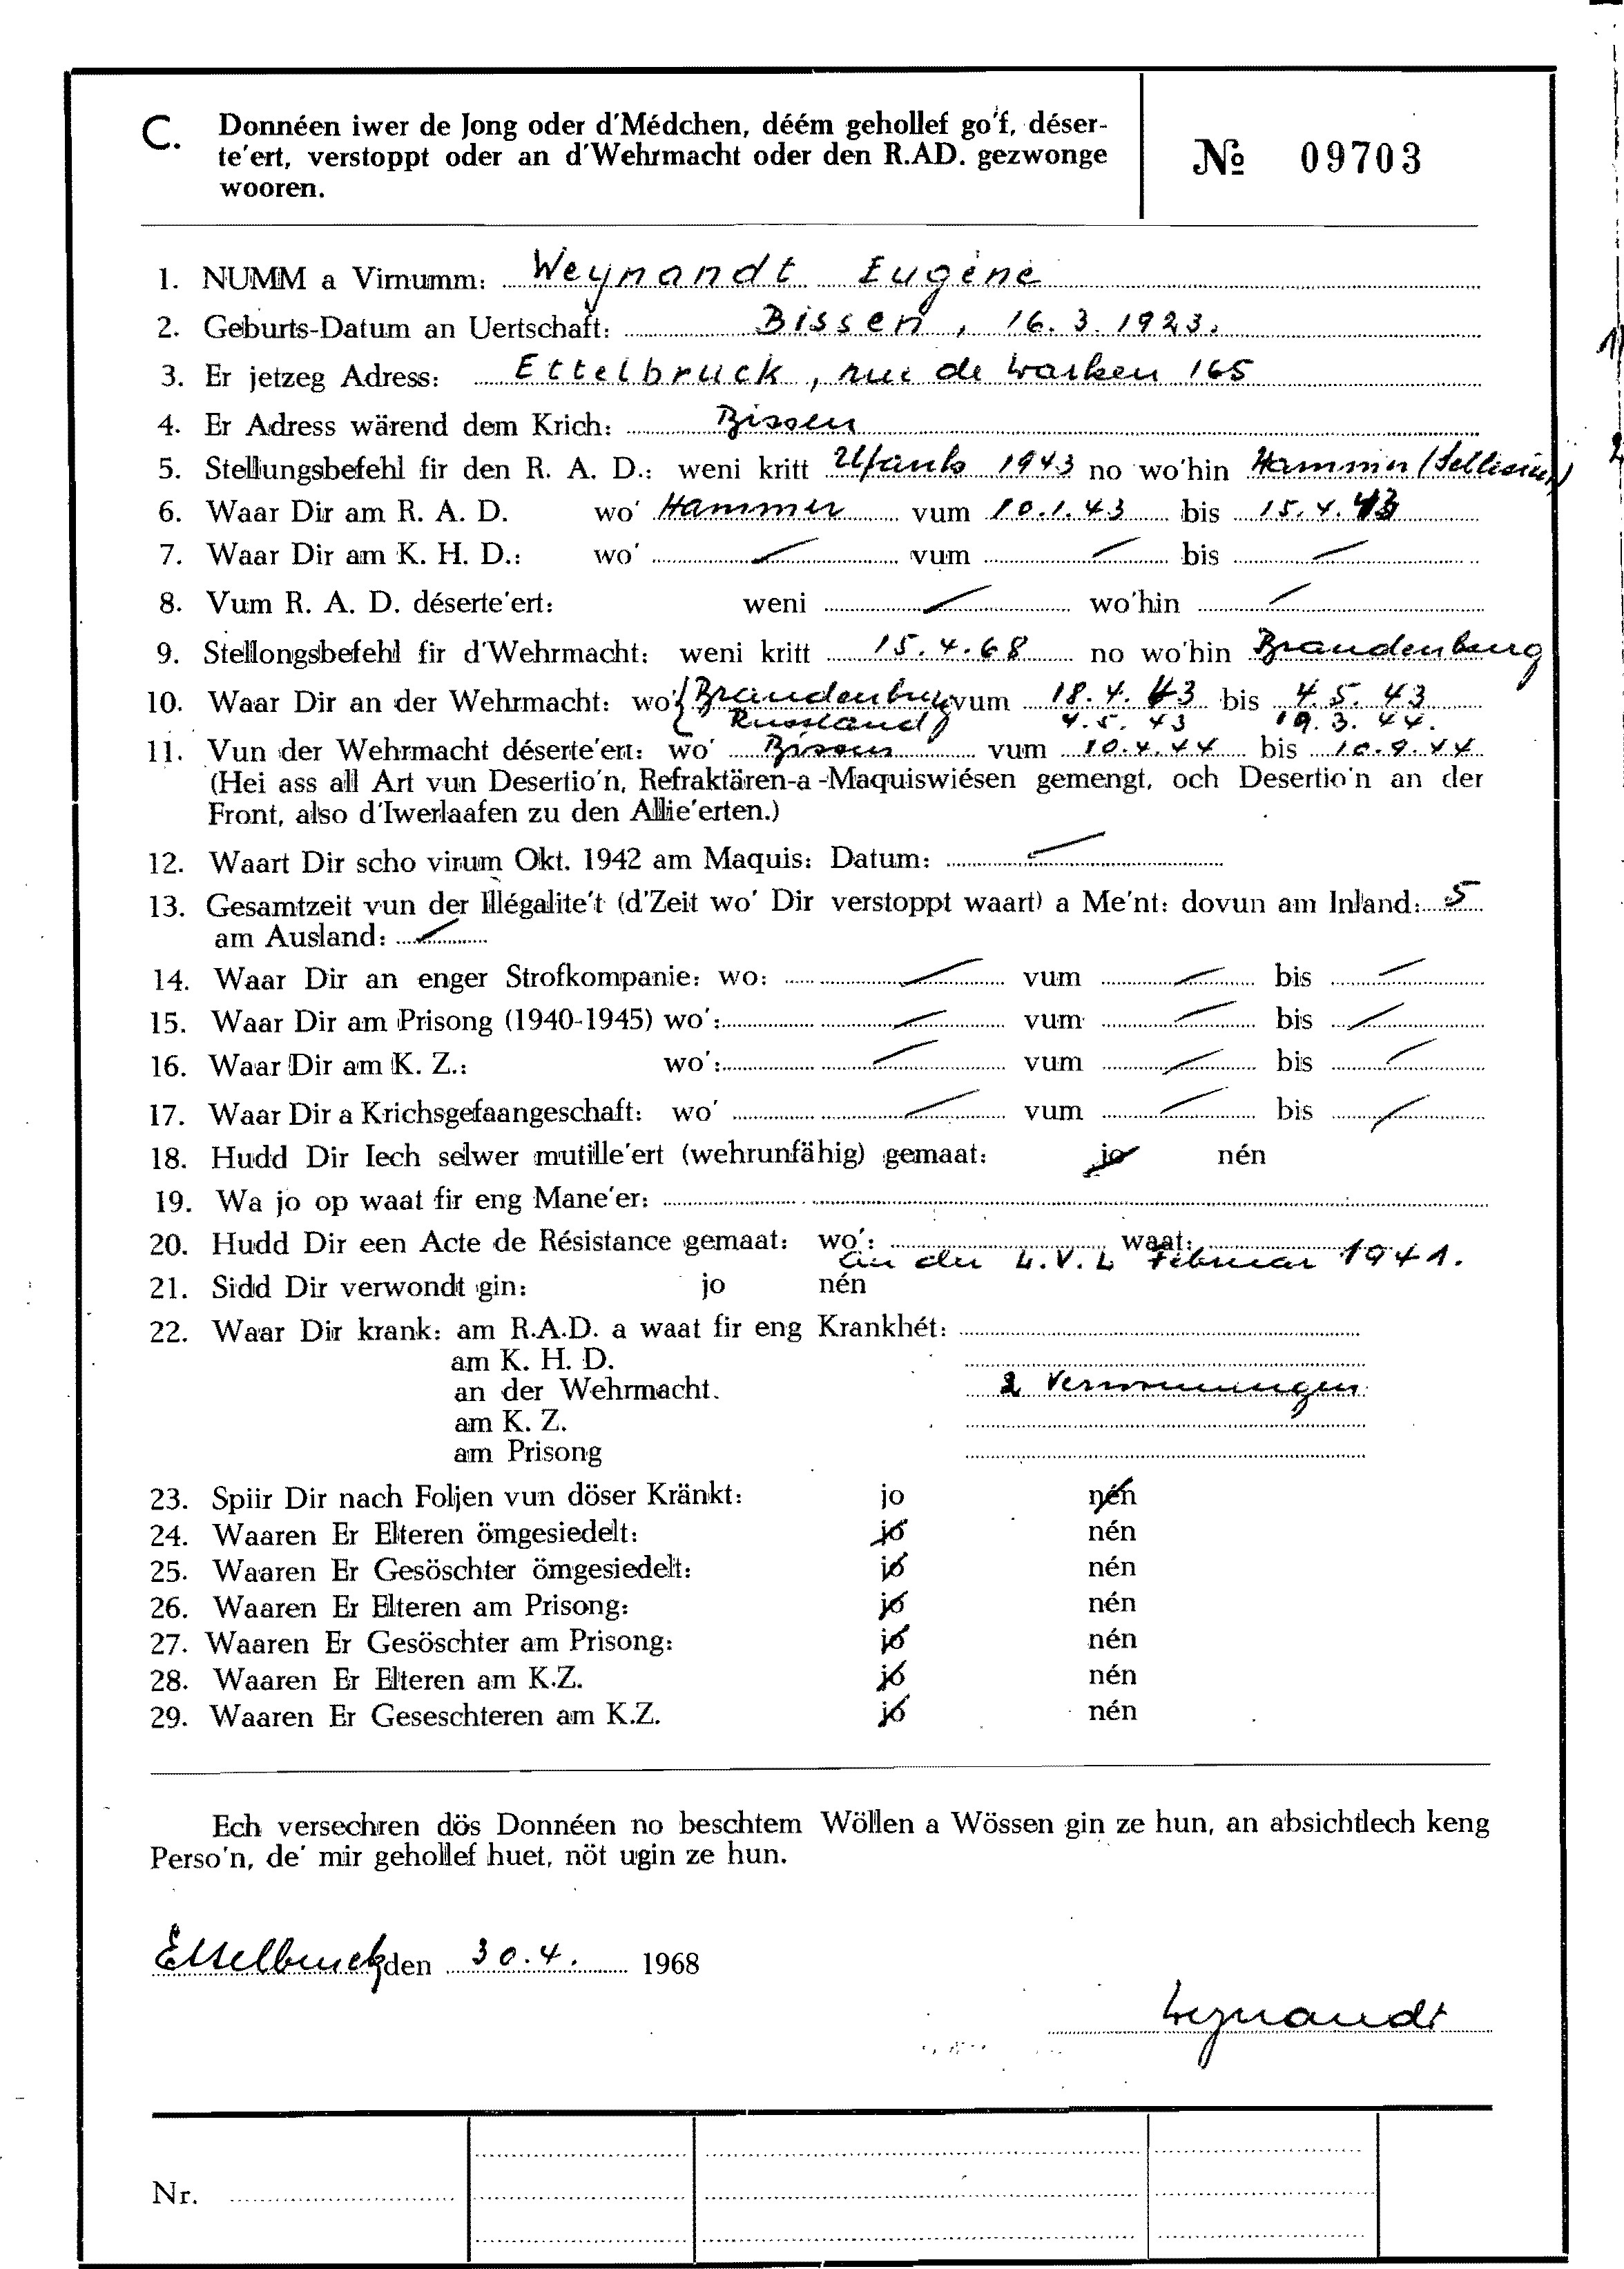 C. Donnéen iwer de Jong oder d'Médchen, déém gehollef go'f, déser-
te'ert, verstoppt oder an d'Wehrmacht oder den R.AD. gezwonge
wooren.
№ 09703
1. NUMM a Virnumm: Weynandt Eugène
2. Geburts-Datum an Uertschaft: Bissen, 16.3.1923.
3. Er jetzeg Adress: Ettelbruck, rue de Warken 165
4. Er Adress wärend dem Krich: Bissen
5. Stellungsbefehl fir den R. A. D.: weni kritt Ufanks 1943 no wo'hin Hammer
6. Waar Dir am R. A. D. wo' Hammer vum 10.1.43 bis 15.4.43
7. Waar Dir am K. H. D.: wo' vum bis
8. Vum R. A. D. déserte'ert: weni wo'hin
9. Stellongsbefehl fir d'Wehrmacht: weni kritt 15.4.68 no wo'hin Brandenburg
10. Waar Dir an der Wehrmacht: wo' Brandenburg vum 18.4.43 bis 4.5.43
Russland 4.5.43 19.3.44.
11. Vun der Wehrmacht déserte'ert: wo' Bissen vum 10.4.44 bis 10.9.44
(Hei ass all Art vun Desertio'n, Refraktären-a-Maquiswiésen gemengt, och Desertio'n an der
Front, also d'Iwerlaafen zu den Allie'erten.)
12. Waart Dir scho virum Okt. 1942 am Maquis: Datum:
13. Gesamtzeit vun der Illégalite't (d'Zeit wo' Dir verstoppt waart) a Me'nt: dovun am Inland: 5
am Ausland:
14. Waar Dir an enger Strofkompanie: wo: vum bis
15. Waar Dir am Prisong (1940-1945) wo': vum bis
16. Waar Dir am K. Z.: wo': vum bis
17. Waar Dir a Krichsgefaangeschaft: wo' vum bis
18. Hudd Dir Iech selwer mutille'ert (wehrunfähig) gemaat: jo nén
19. Wa jo op waat fir eng Mane'er:
20. Hudd Dir een Acte de Résistance gemaat: wo': waat:
an der L.V.L Februar 1941.
21. Sidd Dir verwondt gin: jo nén
22. Waar Dir krank: am R.A.D. a waat fir eng Krankhét:
am K. H. D.
an der Wehrmacht. 2
am K. Z.
am Prisong
23. Spiir Dir nach Foljen vun döser Kränkt: jo nén
24. Waaren Er Elteren ömgesiedelt: jo nén
25. Waaren Er Gesöschter ömgesiedelt: jo nén
26. Waaren Er Elteren am Prisong: jo nén
27. Waaren Er Gesöschter am Prisong: jo nén
28. Waaren Er Elteren am K.Z. jo nén
29. Waaren Er Geseschteren am K.Z. jo nén
Ech versechren dös Donnéen no beschtem Wöllen a Wössen gin ze hun, an absichtlech keng
Perso'n, de' mir gehollef huet, nöt ugin ze hun.
Ettelbruck den 30.4. 1968
Weynandt
Nr.